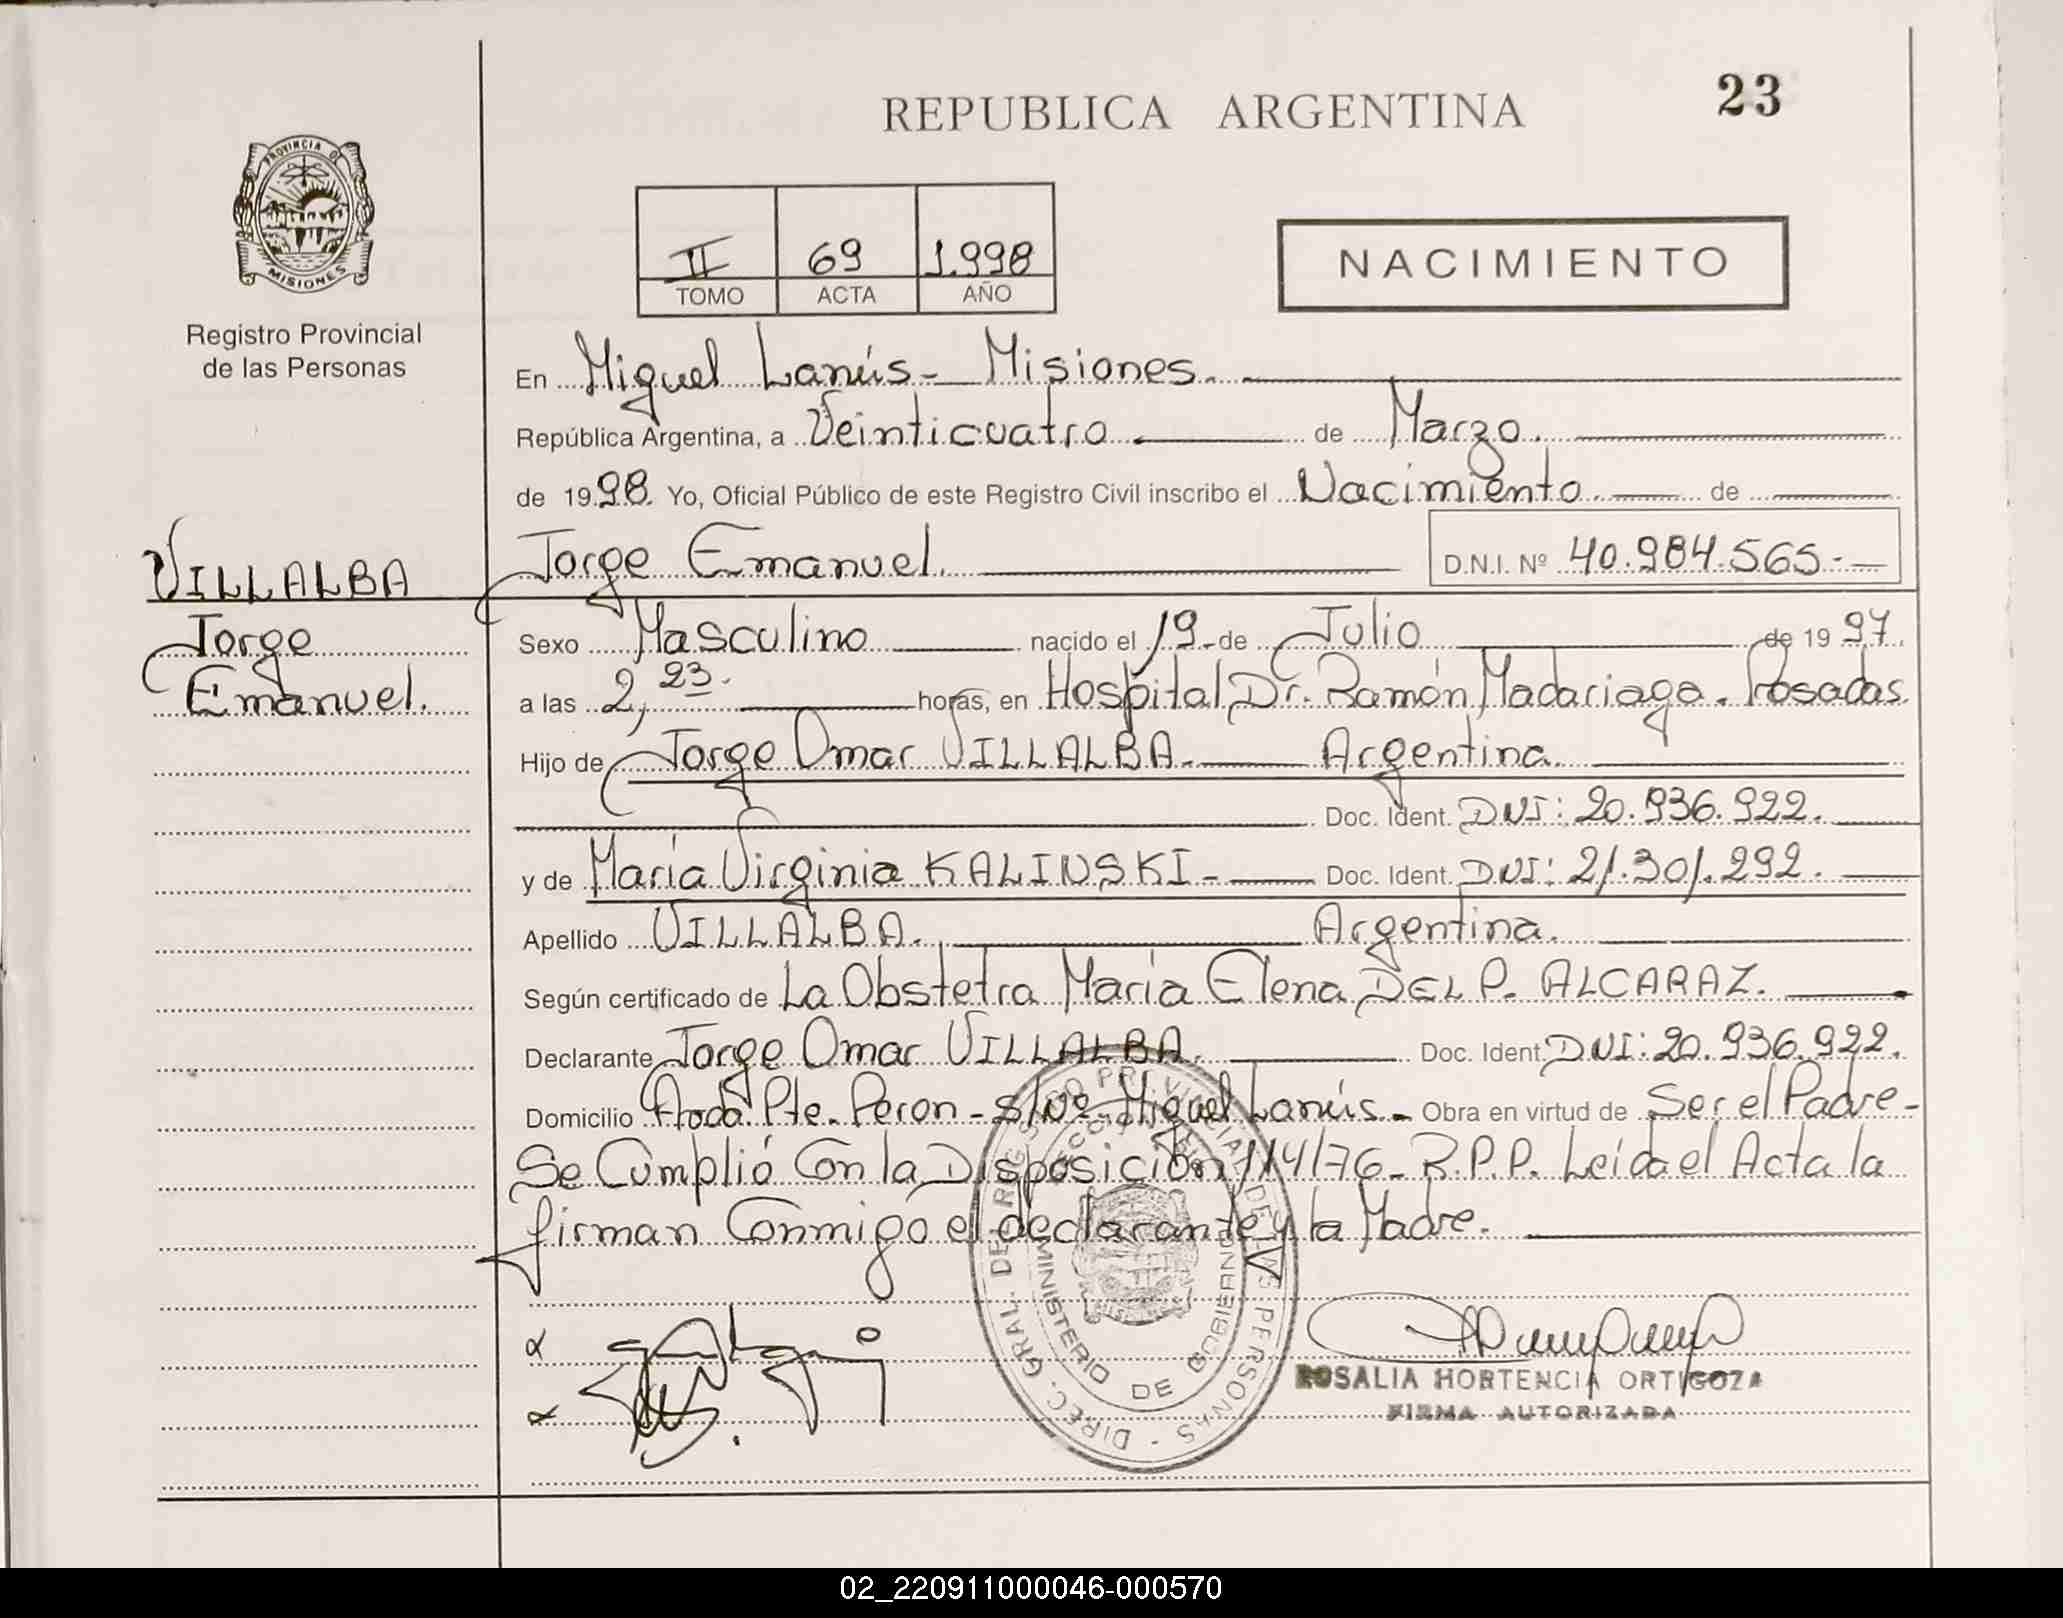 REPUBLICA ARGENTINA
23
PROVINCIA DE
MISIONES
Registro Provincial
de las Personas
II 69 1.998
TOMO ACTA AÑO
NACIMIENTO
En Miguel Lanús - Misiones.
República Argentina, a Veinticuatro de Marzo.
de 1998. Yo, Oficial Público de este Registro Civil inscribo el Nacimiento de
Jorge Emanuel. D.N.I. Nº 40.984.565.-
VILLALBA
Jorge
Emanuel.
Sexo Masculino nacido el 19 de Julio de 1997.
a las 2,23. horas, en Hospital Dr. Ramón Madariaga. Posadas.
Hijo de Jorge Omar VILLALBA. Argentina.
Doc. Ident. DNI: 20.936.922.
y de María Virginia KALINSKI - Doc. Ident. DNI: 21.301.292.
Apellido VILLALBA. Argentina.
Según certificado de La Obstetra María Elena DEL P. ALCARAZ.
Declarante Jorge Omar VILLALBA. Doc. Ident. DNI: 20.936.922.
Domicilio Avda. Pte. Peron - S/Nº. Miguel Lanús - Obra en virtud de Ser el Padre -
Se Cumplió Con la Disposición 114/76 - R.P.P. Leida el Acta la
firman Conmigo el declarante y la Madre.
DIREC. GRAL. DE REGISTRO PROVINCIAL DE LAS PERSONAS -
MINISTERIO DE GOBIERNO
ROSALIA HORTENCIA ORTIGOZA
FIRMA AUTORIZADA
02_220911000046-000570